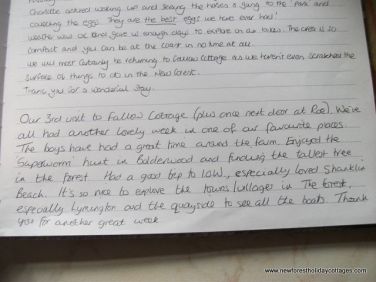 Charlotte adored waking up and seeing the horses & going to the Park and
collecting the eggs. They are the best eggs we have ever had!
weather was ok and gave us enough days to explore on our bikes. The area is so
compact and you can be at the coast in no time at all.
We will most certainly be returning to Fallow Cottage as we haven't even scratched the
surface of things to do in the New Forest.
Thank you for a wonderful stay.
Our 3rd visit to Fallow Cottage (plus once next door at Roe). We've
all had another lovely week in one of our favourite places.
The boys have had a great time around the farm. Enjoyed the
'Superworm' hunt in Bolderwood and finding the tallest tree
in the forest. Had a good trip to IOW, especially loved Shanklin
Beach. It's so nice to explore the towns/villages in The forest,
especially Lymington and the quayside to see all the boats. Thank
you for another great week
www.newforestholidaycottages.com